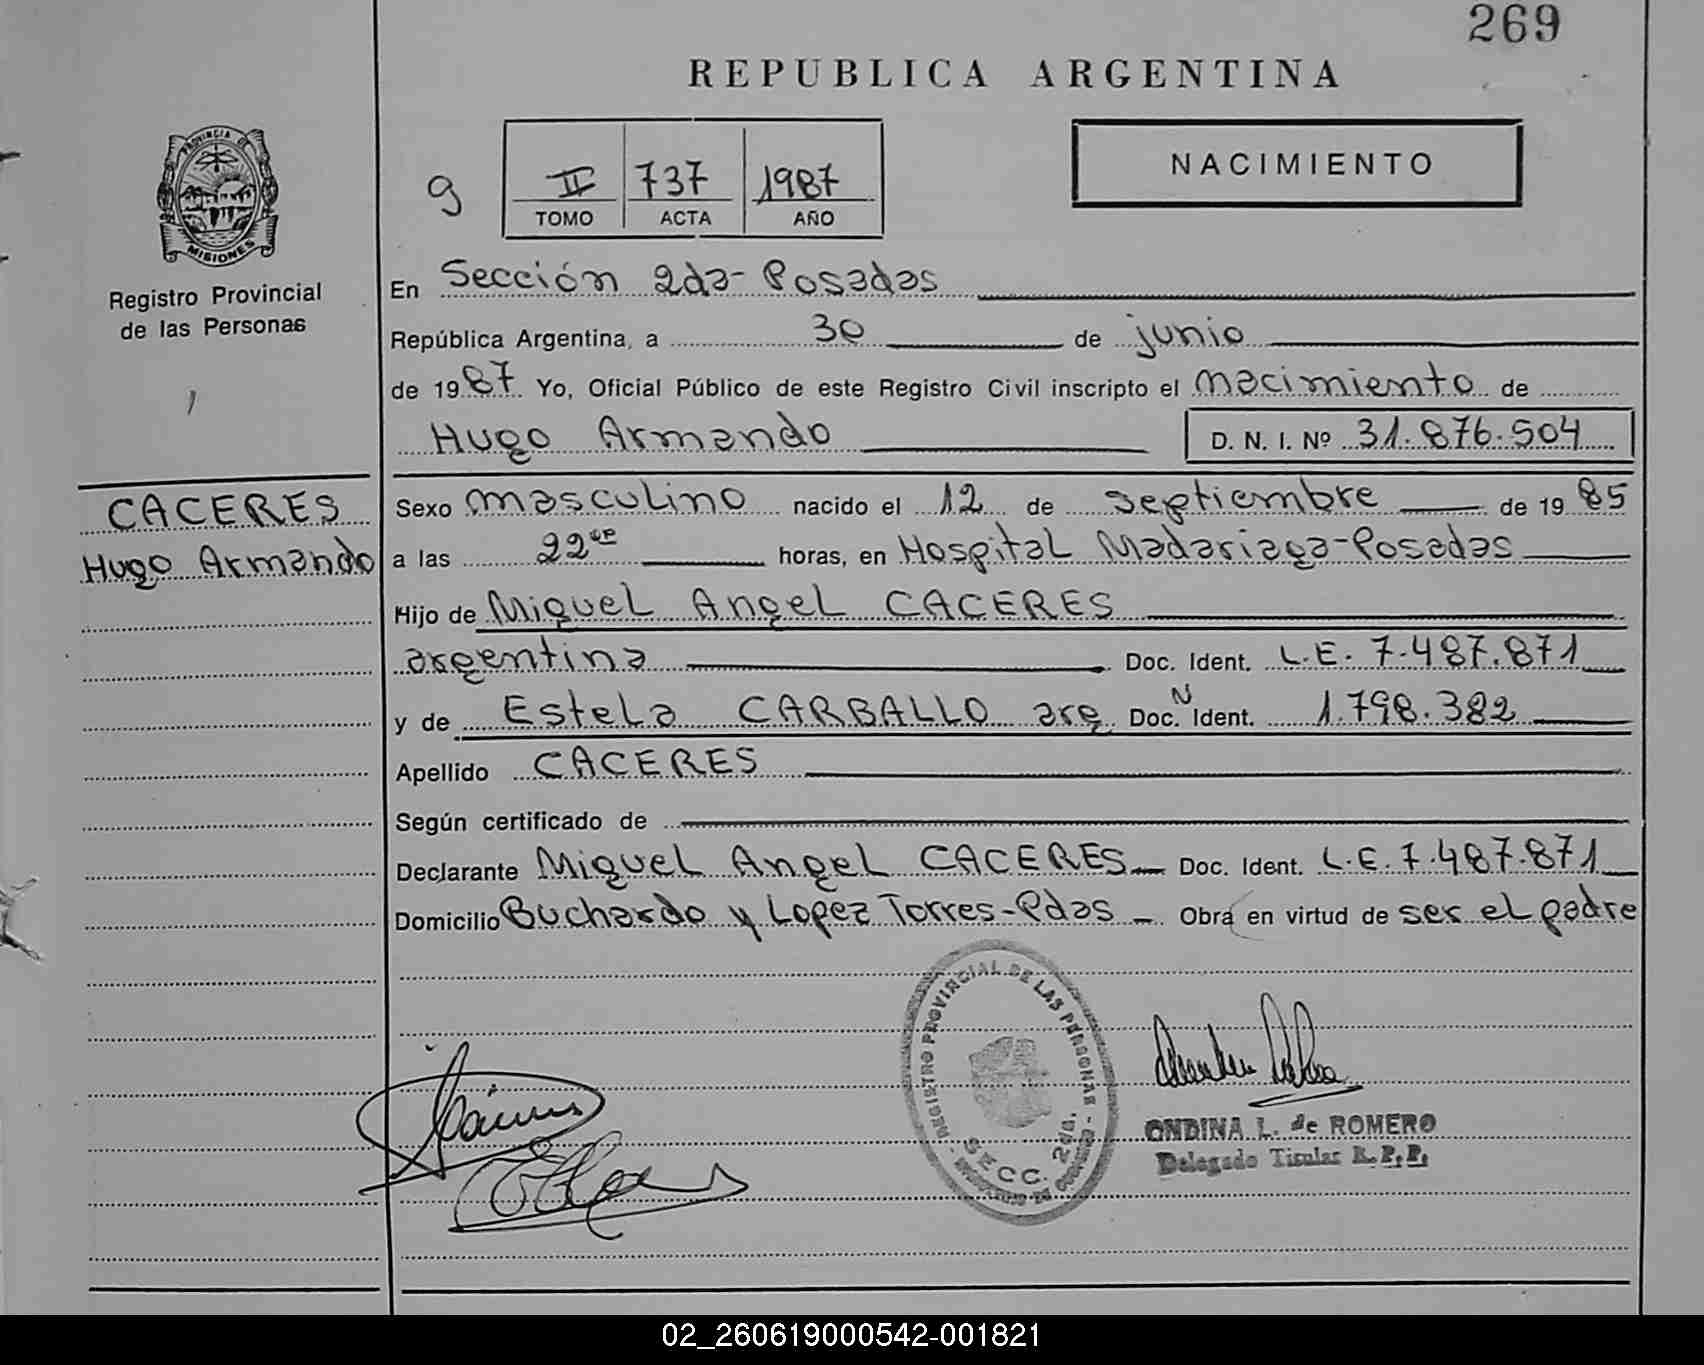 269
REPUBLICA ARGENTINA
PROVINCIA DE
MISIONES
Registro Provincial
de las Personas
9
II 737 1987
TOMO ACTA AÑO
NACIMIENTO
En Sección 2da- Posadas
República Argentina, a 30 de junio
de 1987 Yo, Oficial Público de este Registro Civil inscripto el nacimiento de
Hugo Armando D. N. I. Nº 31.876.504
CACERES
Hugo Armando
Sexo masculino nacido el 12 de septiembre de 1985
a las 22 horas, en Hospital Madariaga-Posadas
Hijo de Miguel Angel CACERES
argentina Doc. Ident. L.E. 7.487.871
y de Estela CARBALLO arg Doc. N Ident. 1.798.382
Apellido CACERES
Según certificado de
Declarante Miguel Angel CACERES Doc. Ident. L.E. 7.487.871
Domicilio Buchardo y Lopez Torres-Pdas Obra en virtud de ser el padre
REGISTRO PROVINCIAL DE LAS PERSONAS
SECC. 2da.
ONDINA L. de ROMERO
Delegado Titular R.P.P.
02_260619000542-001821